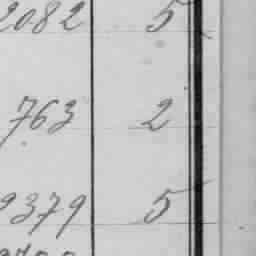 2082 5
763 2
9379 5